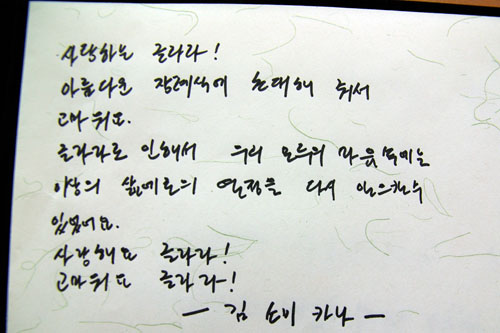 사랑하는 글라라!
아름다운 장례식에 초대해 줘서
고마워요.
글라라로 인해서 우리 모두의 마음속에는
이상의 삶에로의 열정을 다시 일으킬수
있었어요.
사랑해요 글라라!
고마워요 글라라!
— 김 소비 카나 —